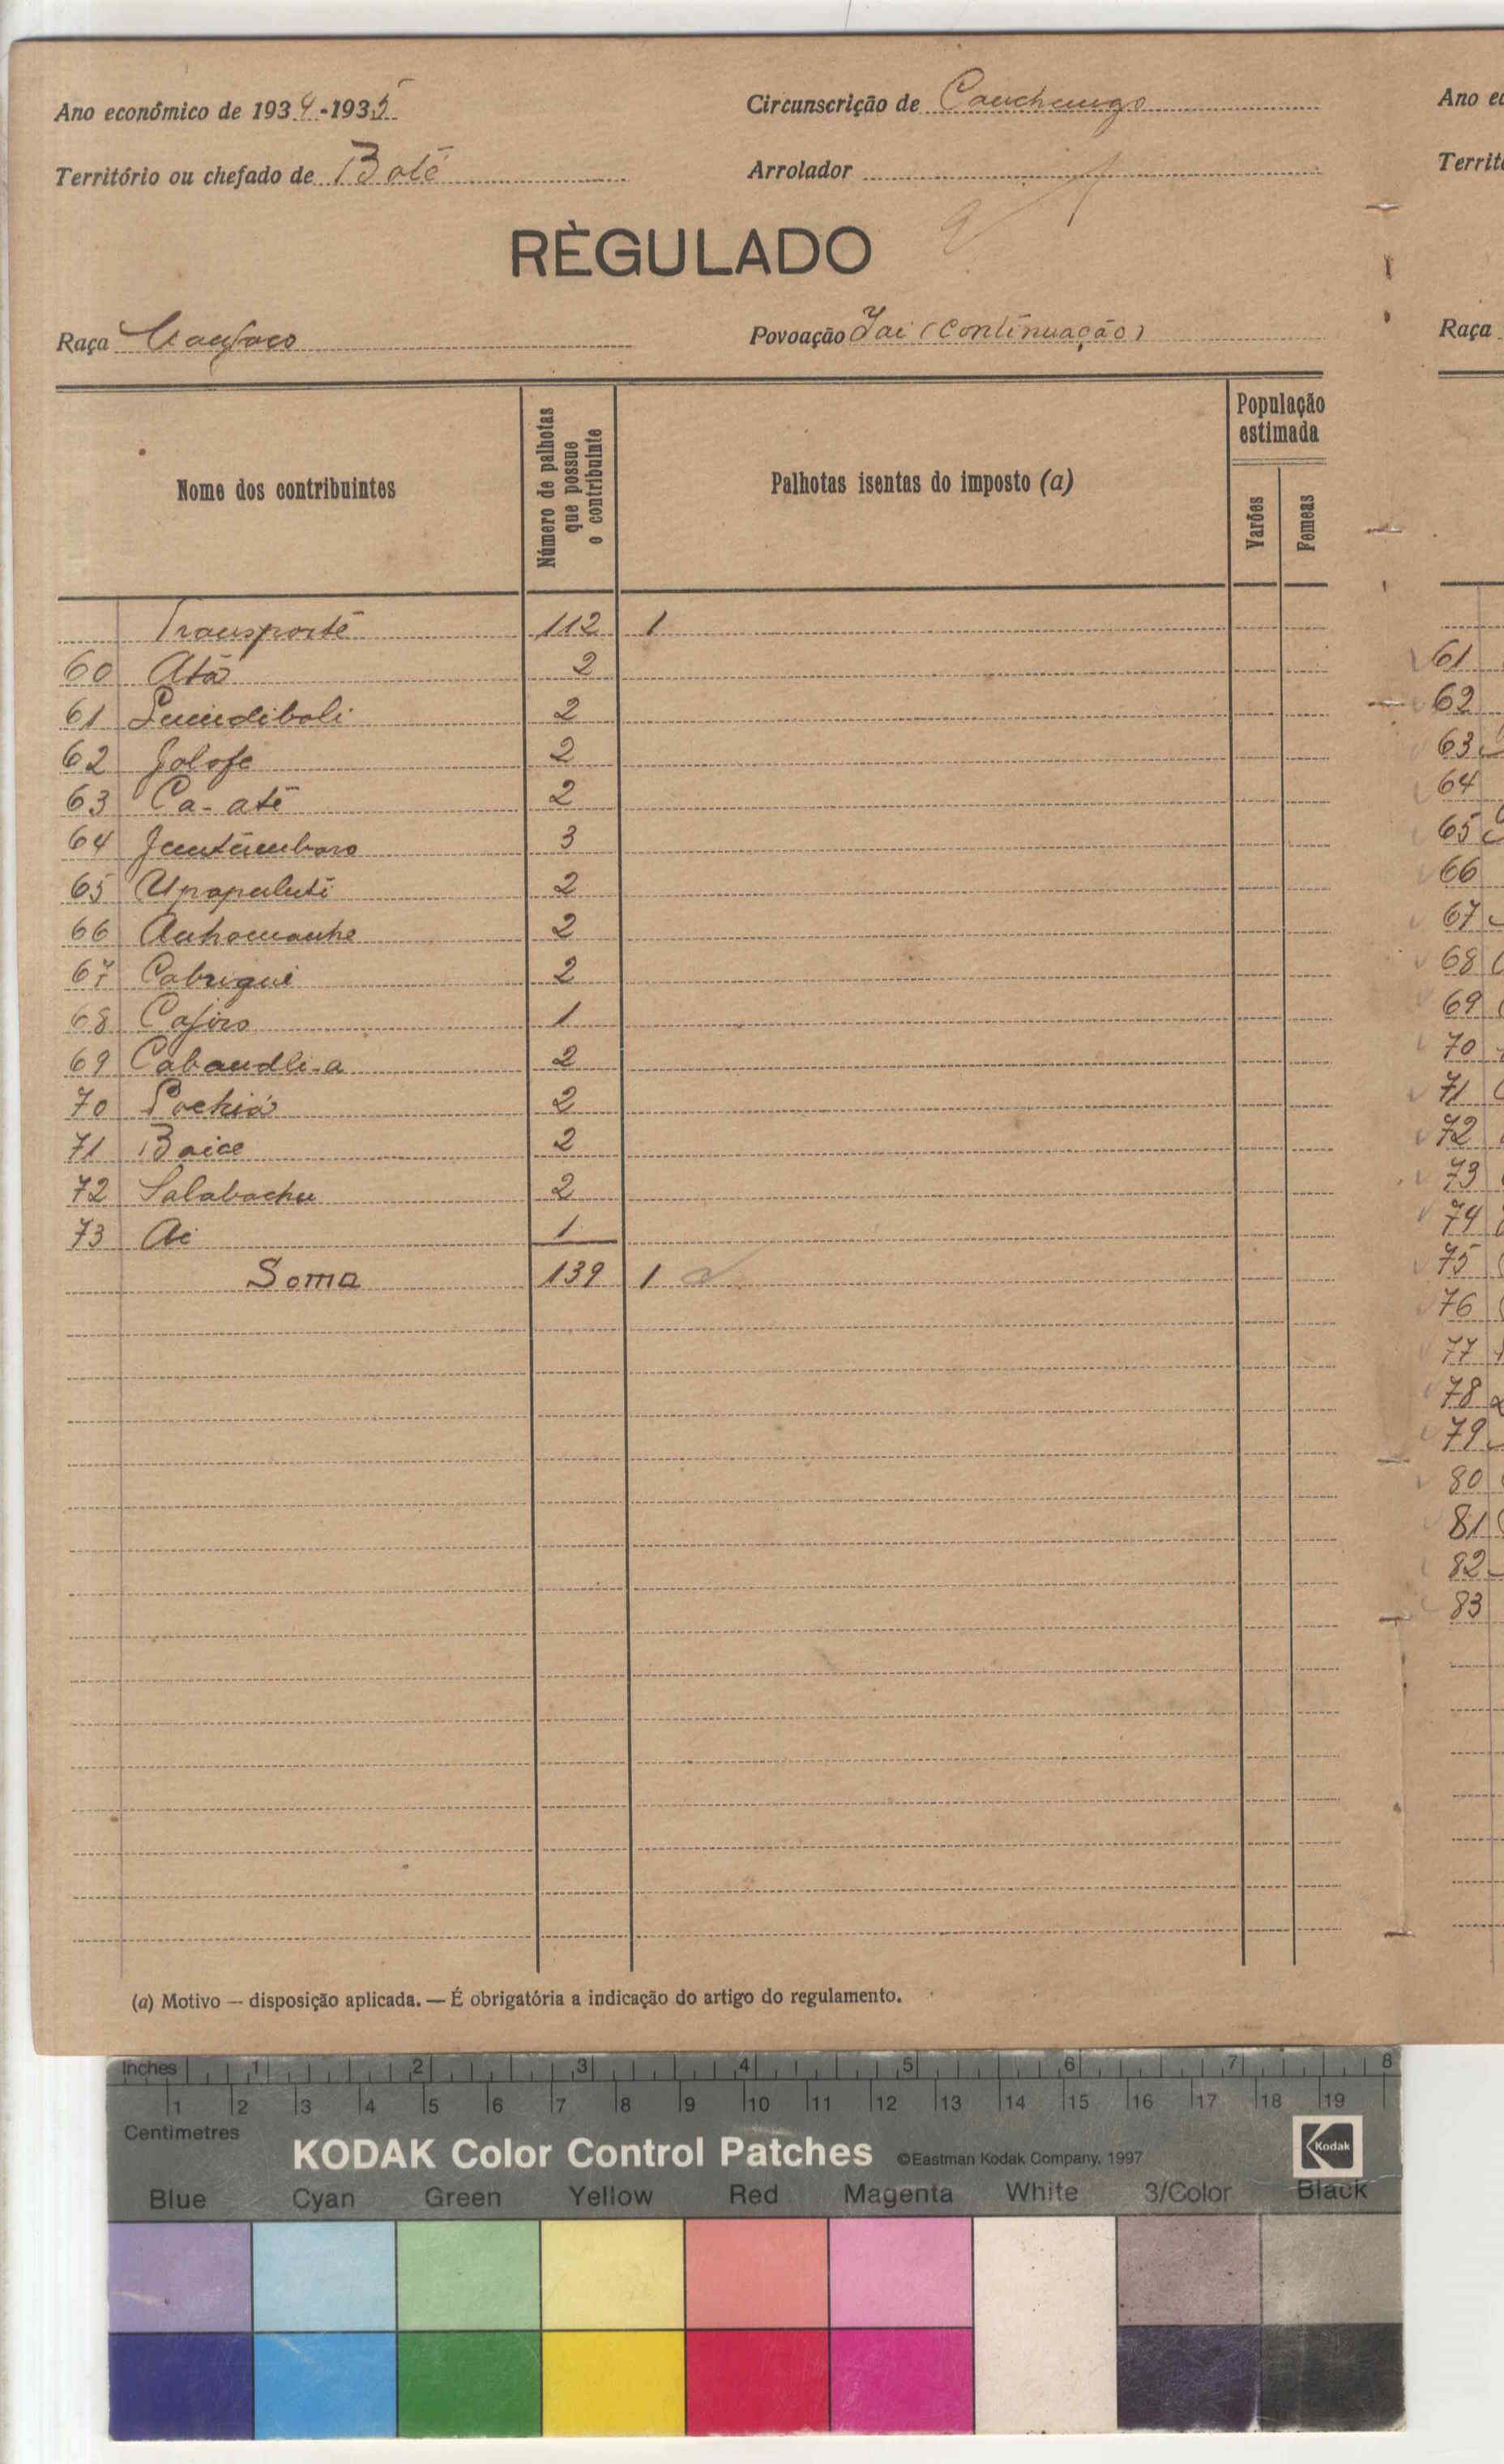 Ano económico de 1934-1935
Circunscrição de Canchungo
Território ou chefado de Boté
Arrolador
RÈGULADO
Raça Manjaco
Povoação Jai (continuação)
Nome dos contribuintes
Número de palhotas que possue o contribuinte
Palhotas isentas do imposto (a)
População estimada
Varões
Femeas
Transporte 112 1
60 Atá 2
61 2
62 Jolofe 2
63 Ca-até 2
64 3
65 Upapuluti 2
66 2
67 Cabrigui 2
68 Cajiro 1
69 Cabandli-a 2
70 Pochiá 2
71 Baice 2
72 Salabachu 2
73 Ai 1
Soma 139 1
(a) Motivo — disposição aplicada. — É obrigatória a indicação do artigo do regulamento.
Ano ec
Territó
Raça
61
62
63
64
65
66
67
68
69
70
71
72
73
74
75
76
77
78
79
80
81
82
83
Inches 1 2 3 4 5 6 7 8
1 2 3 4 5 6 7 8 9 10 11 12 13 14 15 16 17 18 19
Centimetres
KODAK Color Control Patches ©Eastman Kodak Company, 1997 Kodak
Blue Cyan Green Yellow Red Magenta White 3/Color Black